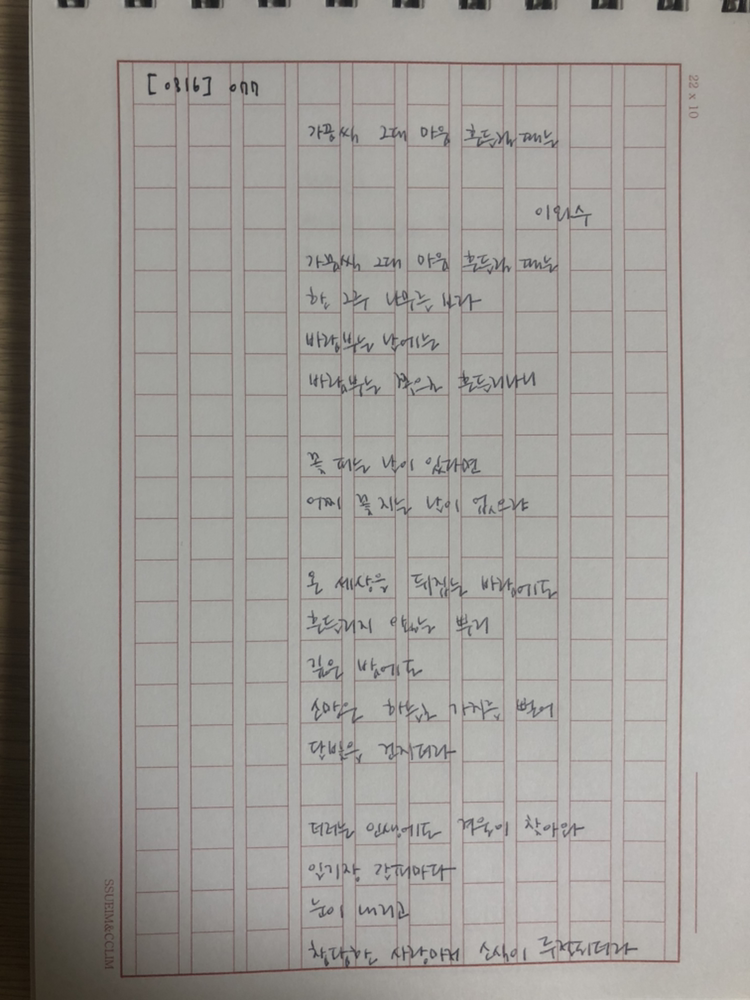 [0316] 077
22 x 10
가끔씩 그대 마음 흔들릴 때는
이외수
가끔씩 그대 마음 흔들릴 때는
한 그루 나무를 보라
바람부는 날에는
바람부는 쪽으로 흔들리나니
꽃 피는 날이 있다면
어찌 꽃 지는 날이 없으랴
온 세상을 뒤집는 바람에도
흔들리지 않는 뿌리
깊은 밤에도
소망은 하늘로 가지를 뻗어
달빛을 건지더라
더러는 인생에도 겨울이 찾아와
일기장 갈피마다
눈이 내리고
참담한 사랑마저 소식이 두절되더라
SSUEIM&CCLIM